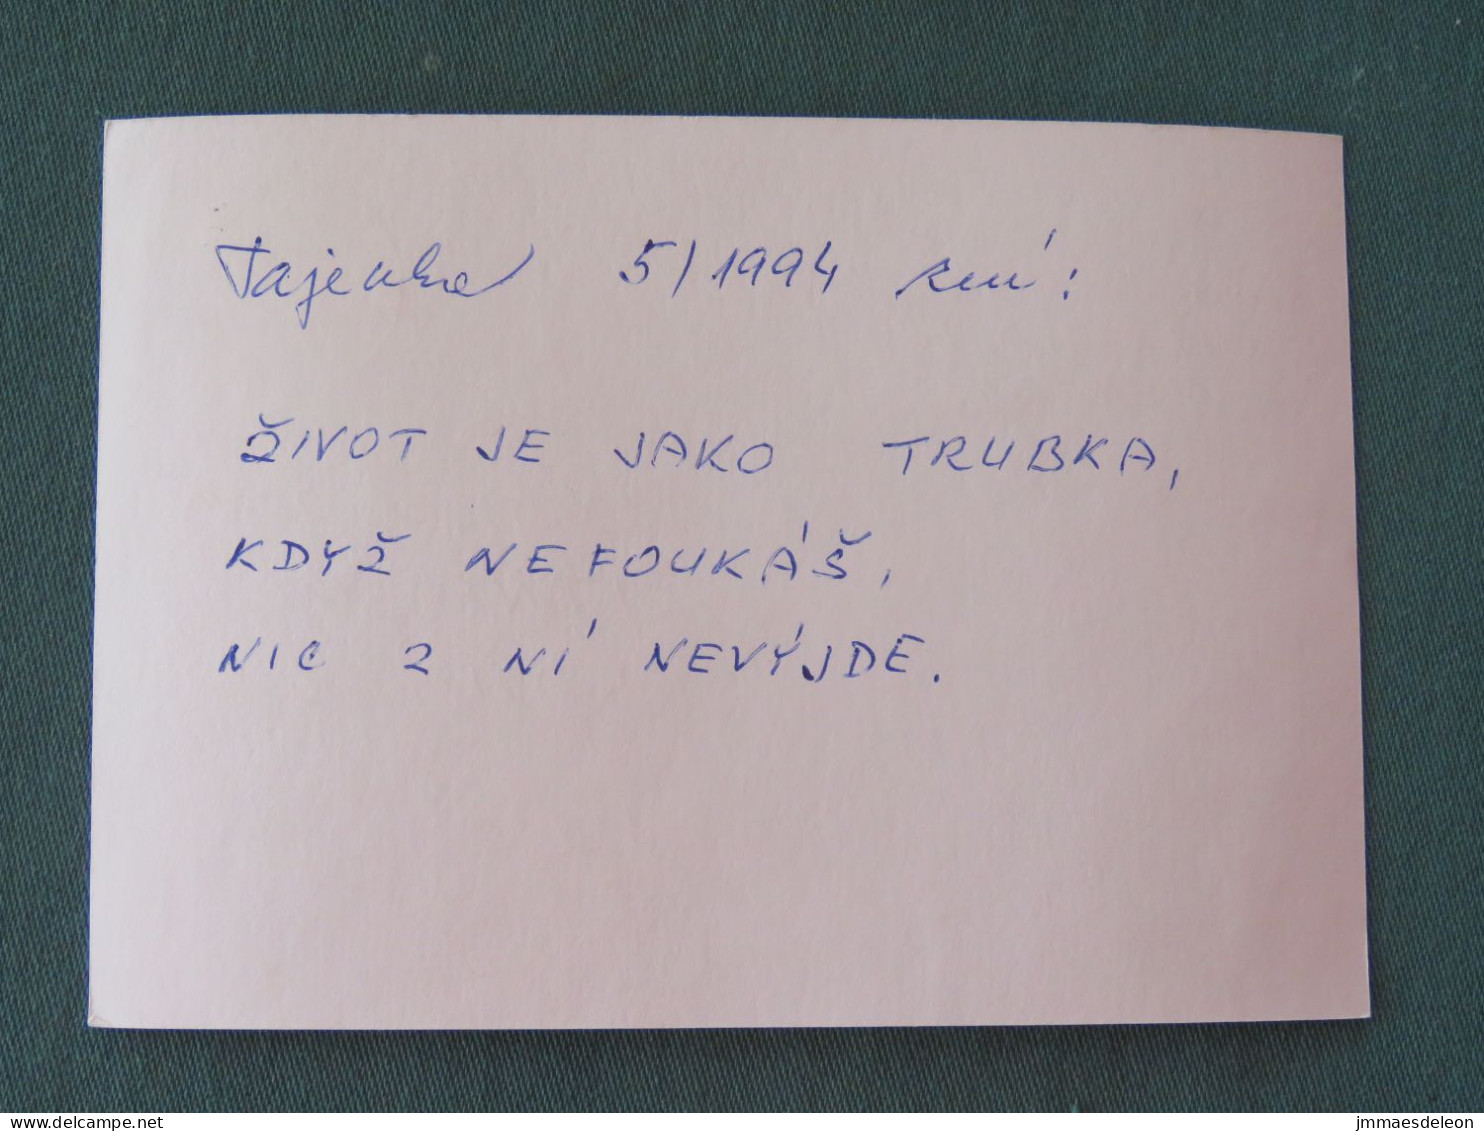 Tajenka 5/1994 zní:
ŽIVOT JE JAKO TRUBKA,
KDYŽ NEFOUKÁŠ,
NIC Z NÍ NEVÝJDE.
www.delcampe.net
jmmaesdeleon